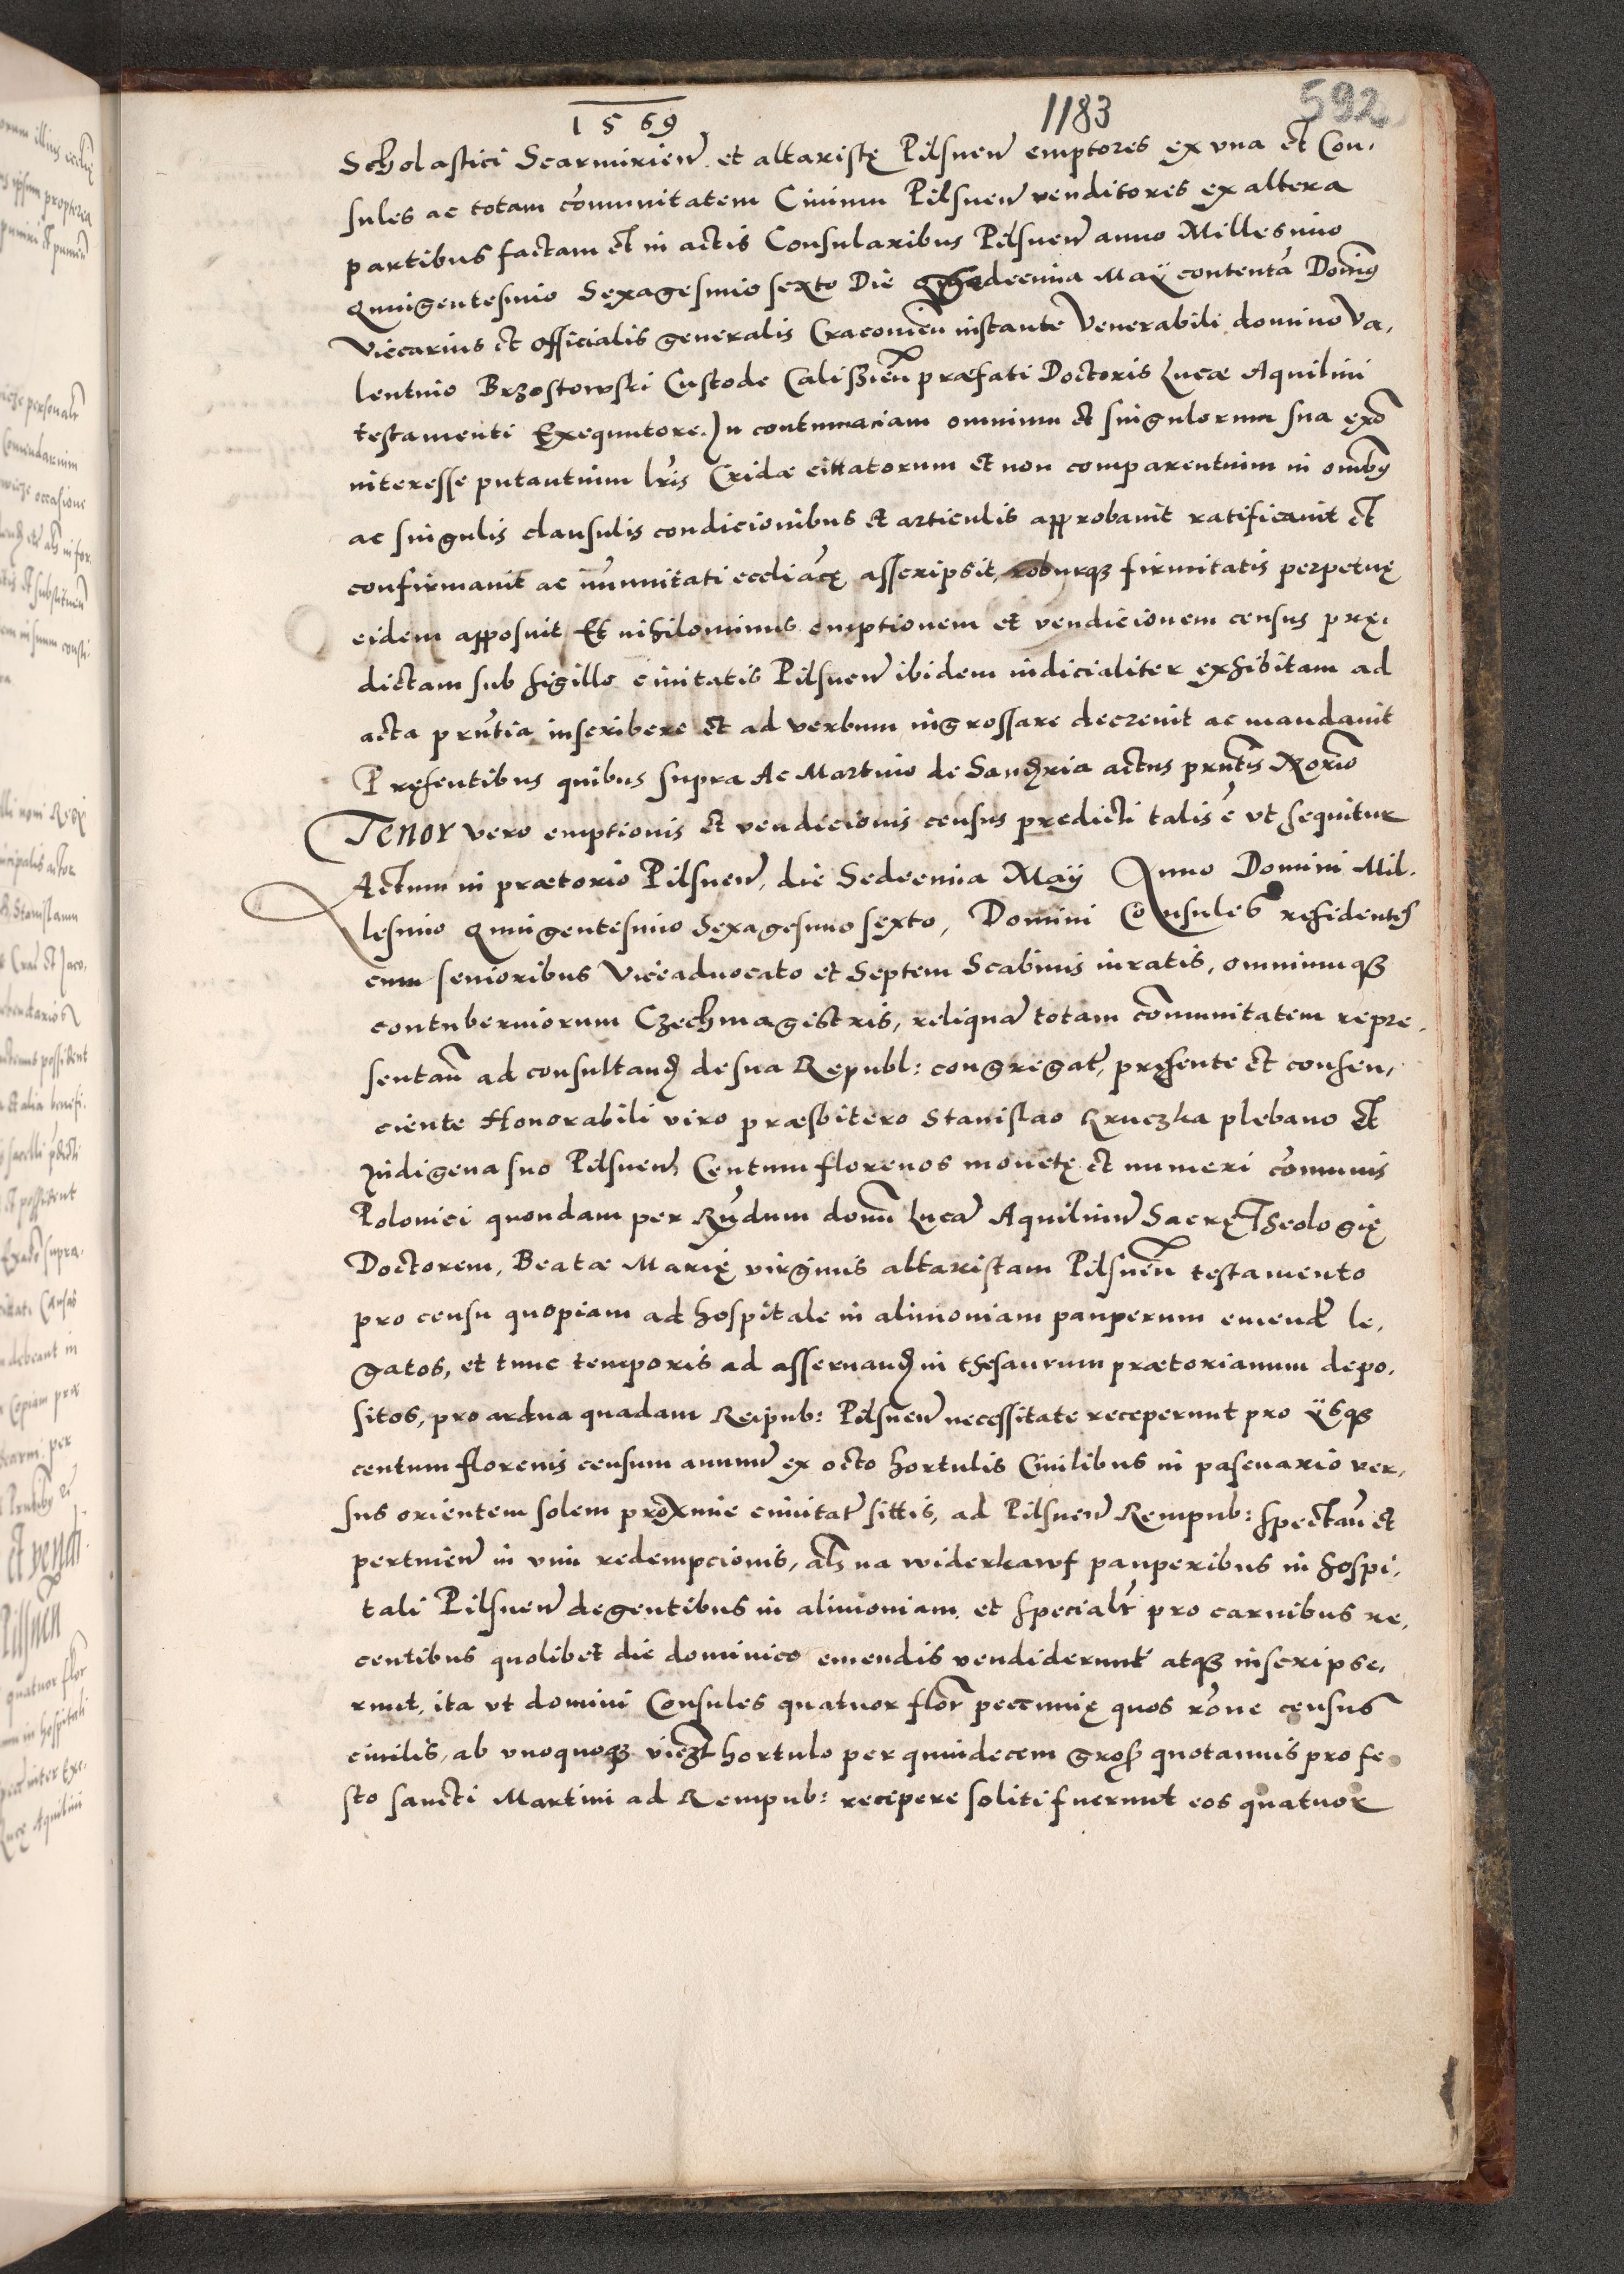 1569 1183 592
Scholastici Scarmirien̄ et altaristę Pilsnen̄ emptores ex vna et Con,
sules ac totam cōmunitatem Ciuium Pilsnen̄ venditores ex altera
partibus factam et in actis Consularibus Pilsnen̄ anno Millesimo
Quingentesimo Sexagesimo sexto Die Sedecima Maÿ contentā Dominꝰ
Viccarius et officialis generalis Cracouien̄ instante Venerabili domino Va,
lentino Brzostowski Custode Calissien̄ præfati Doctoris Lucæ Aquilini
testamenti Exequutore. In contumaciam omnium et singulorum sua
interesse putantium lr̄is Cridæ cittatorum et non comparentium in omībꝰ
ac singulis clausulis condicionibus et articulis approbauit ratificauit et
confirmauit ac īmunitati eccliācę asscripsit, roburqꝫ firmitatis perpetuę
eidem apposuit Et nihilominus emptionem et vendicionem census prę,
dictam sub sigillo ciuitatis Pilsnen̄ ibidem iudicialiter exhibitam ad
acta prn̄tia inscribere et ad verbum ingrossare decreuit ac mandauit
Pręsentibus quibus supra Ac Martino de actus prn̄tis Norio
Tenor vero emptionis et vendicionis census predicti talis ē vt sequitur
Actum in prætorio Pilsnen̄, die Sedecima Maÿ Anno Domini Mil,
lesimo Quingentesimo Sexagesimo sexto, Domini Consules residentes
cum senioribus Viceaduocato et Septem Scabinis iuratis, omniumqꝫ
contuberniorum Czechmagistris, reliquā totam cōmunitatem repre,
sentan̄ ad consultanđ de sua Republ: congregat̄, pręsente et consen,
ciente Honorabili viro præsbitero Stanislao Kruczka plebano et
Indigena suo Pilsnen̄ Centum florenos monetę et numeri cōmunis
Polonici quondam per Rn̄dum domn̄ Lucā Aquilinū Sacrę Theologię
Doctorem, Beatæ Marię virginis altaristam Pilsnen̄ testamento
pro censu quopiam ad hospitale in alimoniam pauperum emend̄ le,
gatos, et tunc temporis ad asseruanđ in thesaurum prætorianum depo,
sitos, pro ardua quadam Reipub: Pilsnen̄ necessitate receperunt pro ijsqꝫ
centum florenis censum annuū ex octo hortulis Ciuilibus in pascuario ver,
sus orientem solem proxime ciuitat̄ sittis, ad Pilsnen̄ Rempub: spectan̄ et
pertinen̄ in vim redempcionis, als na widerkawf pauperibus in hospi,
tali Pilsnen̄ degentibus in alimoniam et specialr̄ pro carnibus re,
centibus quolibet die dominico emendis vendiderunt atqꝫ inscripse,
runt, ita vt domini Consules quatuor flor̄ peccunię quos rōne census
ciuilis, ab vnoquoqꝫ hortulo per quindecem gross quotannis pro fe
sto sancti Martini ad Rempub: recipere soliti fuerunt eos quatuor